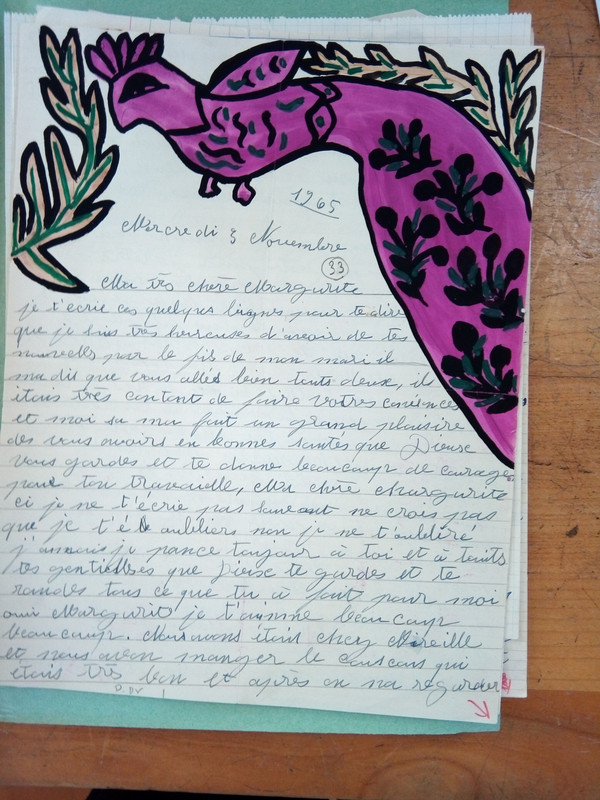 1965
Mercredi 3 Novembre
33
Ma très chère Margurite
je t'écrie ces quelques lignes pour te dire
que je suis très heureuses d'avoir de tes
nouvelles par le fis de mon mari il
ma dit que vous allés bien touts deux, il
étais très contant de faire votres
et moi sa ma fait un grand plaisire
des vous avoirs en bonnes santés que Dieuse
vous gardes et te donne beaucoup de courage
pour ton travaielle, Ma chère Margurite
ci je ne t'écrie pas souvant ne crois pas
que je t'é oubliers non je ne t'oublire
j'ammais je pance toujour à toi et à touts
tes gentiellses que Dieuse te gardes et te
randes tous ce que tu à fait pour moi
oui Margurite je t'aimme beaucoup
beaucoup. Nous avons était chez Mireille
et nous avon manger le couscous qui
étais très bon et après on na regarder